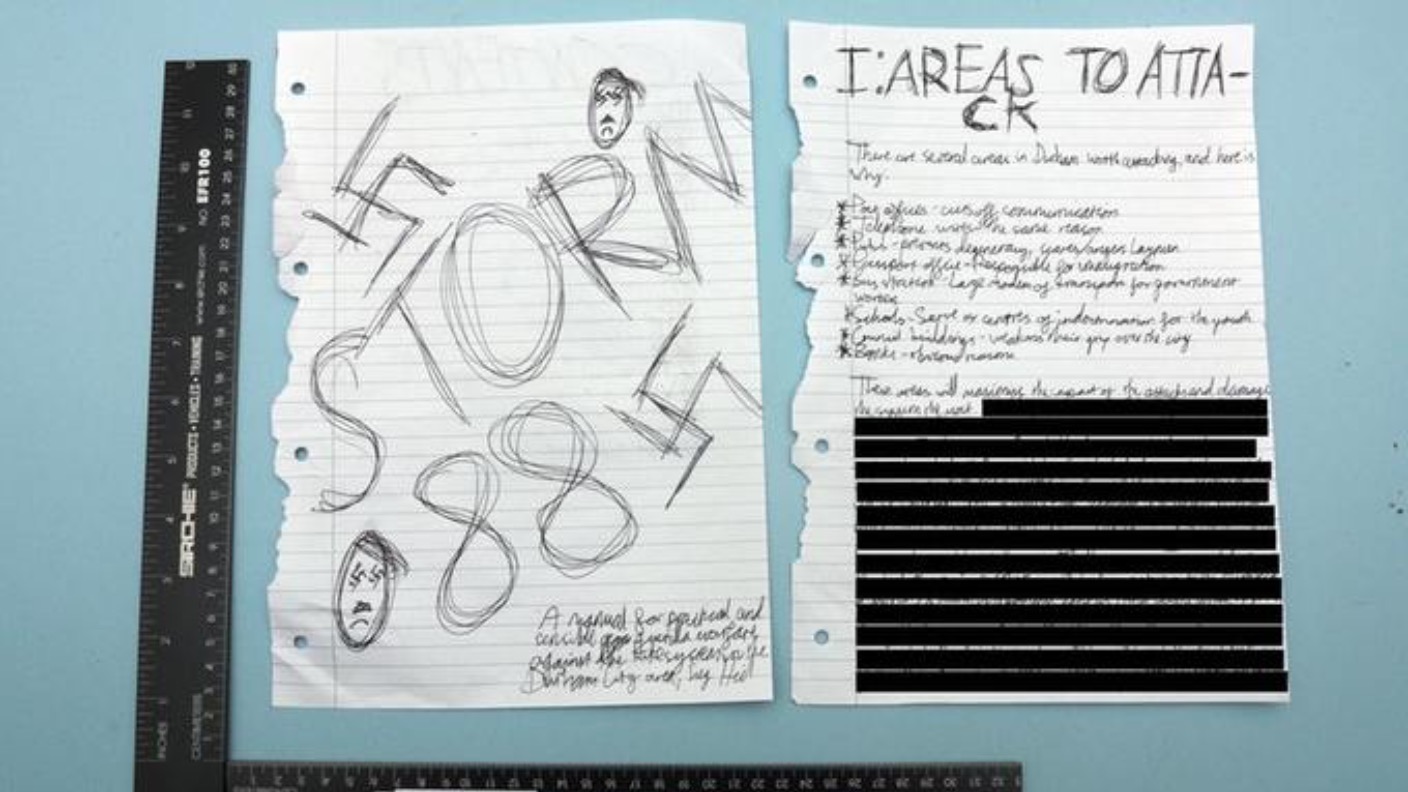 STORM
88
A manual for practical and
guerilla warfare
against the system in the
Durham City area, by
I: AREAS TO ATTA-
CK
There are several areas in Durham worth attacking, and here is
why.
* Post offices - cuts off communication
* Telephone wires - the same reason
* Pubs - promotes degeneracy, layman
* Passport office - Responsible for immigration
* Bus station - Large of transport for government
* Schools - Serve as centres of indoctrination for the youth
* Council buildings - weakens their grip over the city
* Banks - obvious reasons
These areas will maximise the impact of the attacks and damage
the system the most
SIRCHIE PRODUCTS • VEHICLES • TRAINING www.sirchie.com NO. EFR100
INCHES
CENTIMETERS